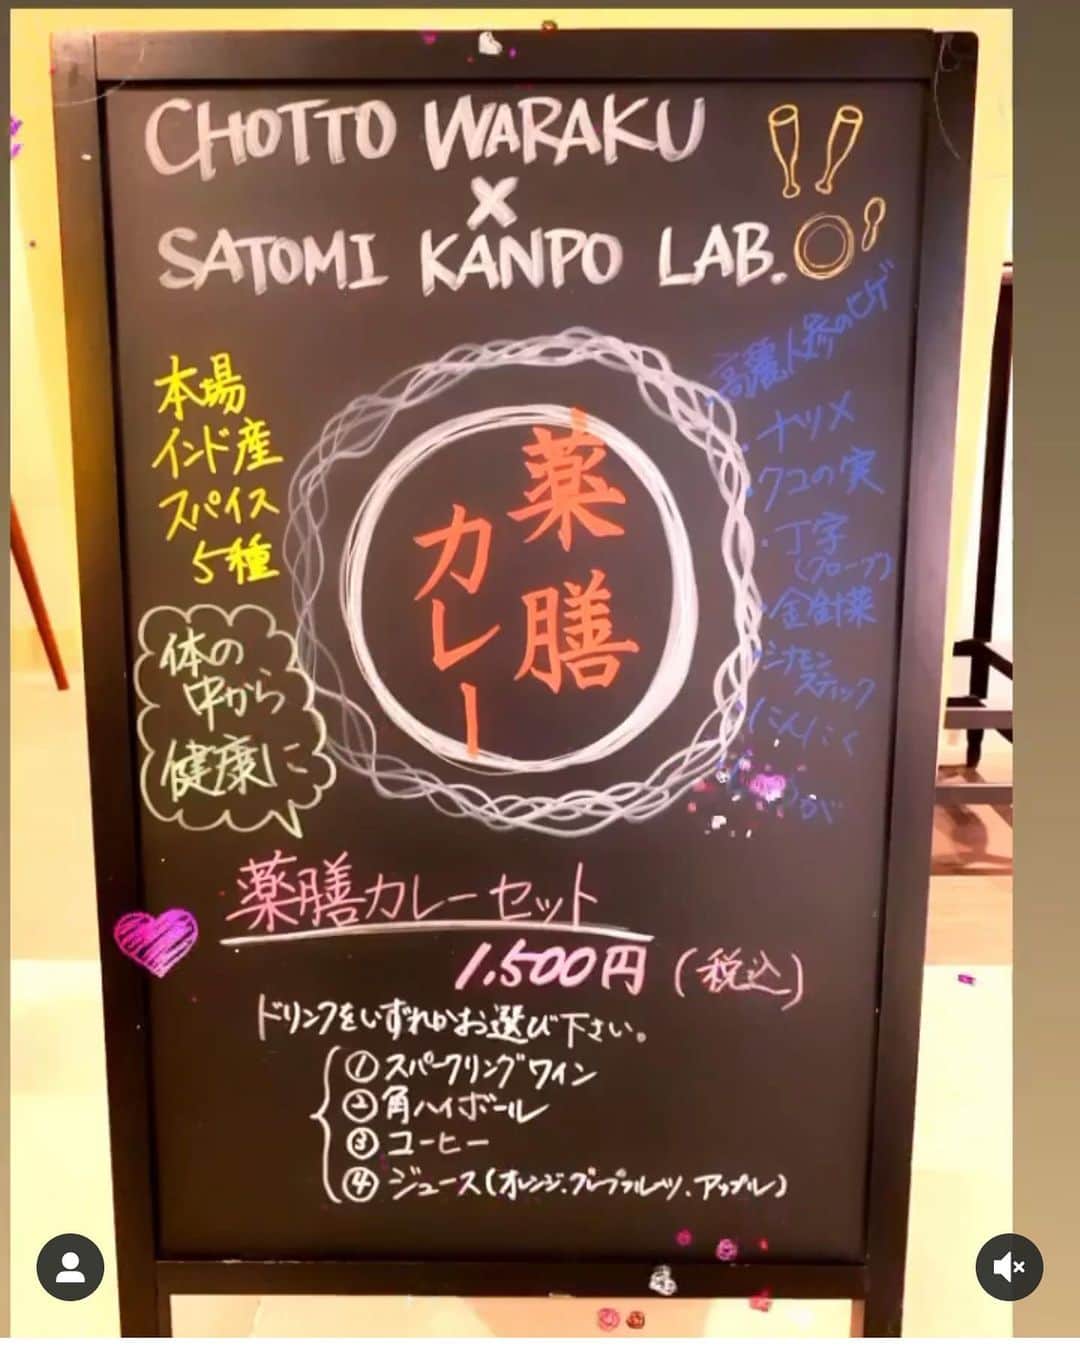 CHOTTO WARAKU
×
SATOMI KANPO LAB.
本場
インド産
スパイス
5種
体の
中から
健康に
薬膳
カレー
・高麗人参のヒゲ
・ナツメ
・クコの実
・丁字
(クローブ)
・金針菜
・シナモン
スティック
・にんにく
薬膳カレーセット
1,500円(税込)
ドリンクをいずれかお選び下さい。
①スパークリングワイン
②角ハイボール
③コーヒー
④ジュース(オレンジ、グレープフルーツ、アップル)